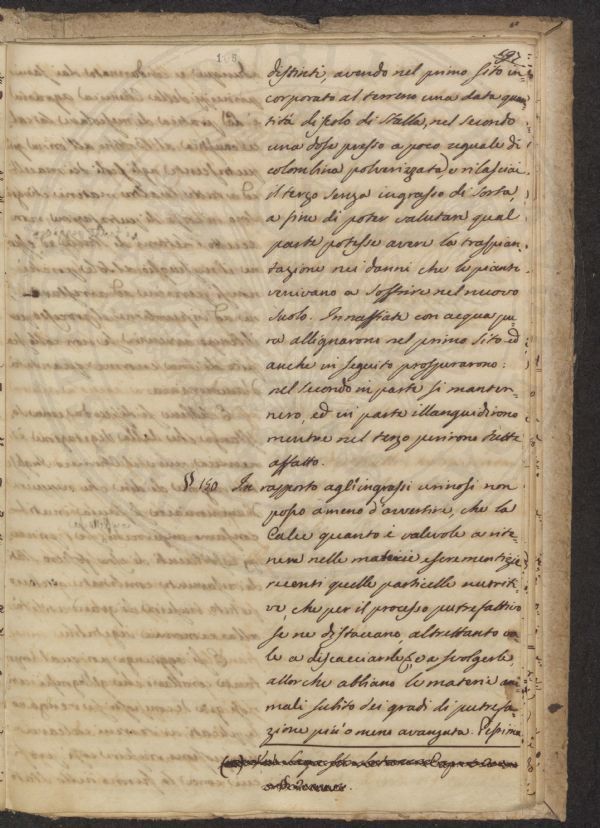 197
108
distinti, avendo nel primo sito in-
corporato al terreno una data quan-
tità di scolo di Stalla, nel secondo
una dose presso a poco eguale di
colombina polverizzata, e rilasciai
il terzo senza ingrasso di sorta,
a fine di poter valutare qual
parte potesse avere la traspian-
tazione nei danni che le piante
venivano a soffrire nel nuovo
suolo. Innaffiate con acqua pu-
ra allignarono nel primo sito ed
anche in seguito prosperarono:
nel secondo in parte si manten-
nero, ed in parte illanguidirono
mentre nel terzo perirono tutte
affatto.
§. 150 In rapporto agl'ingrassi urinosi non
posso a meno d'avvertire, che la
Calce quanto è valevole a rite-
nere nelle materie escrementizie
recenti quelle particelle nutriti-
ve, che per il processo putrefattivo
se ne distaccano, altrettanto va-
le a discacciarle, e a svolgerle
allorche abbiano le materie ani-
mali subito dei gradi di putrefa-
zione più o meno avanzata. Pessima